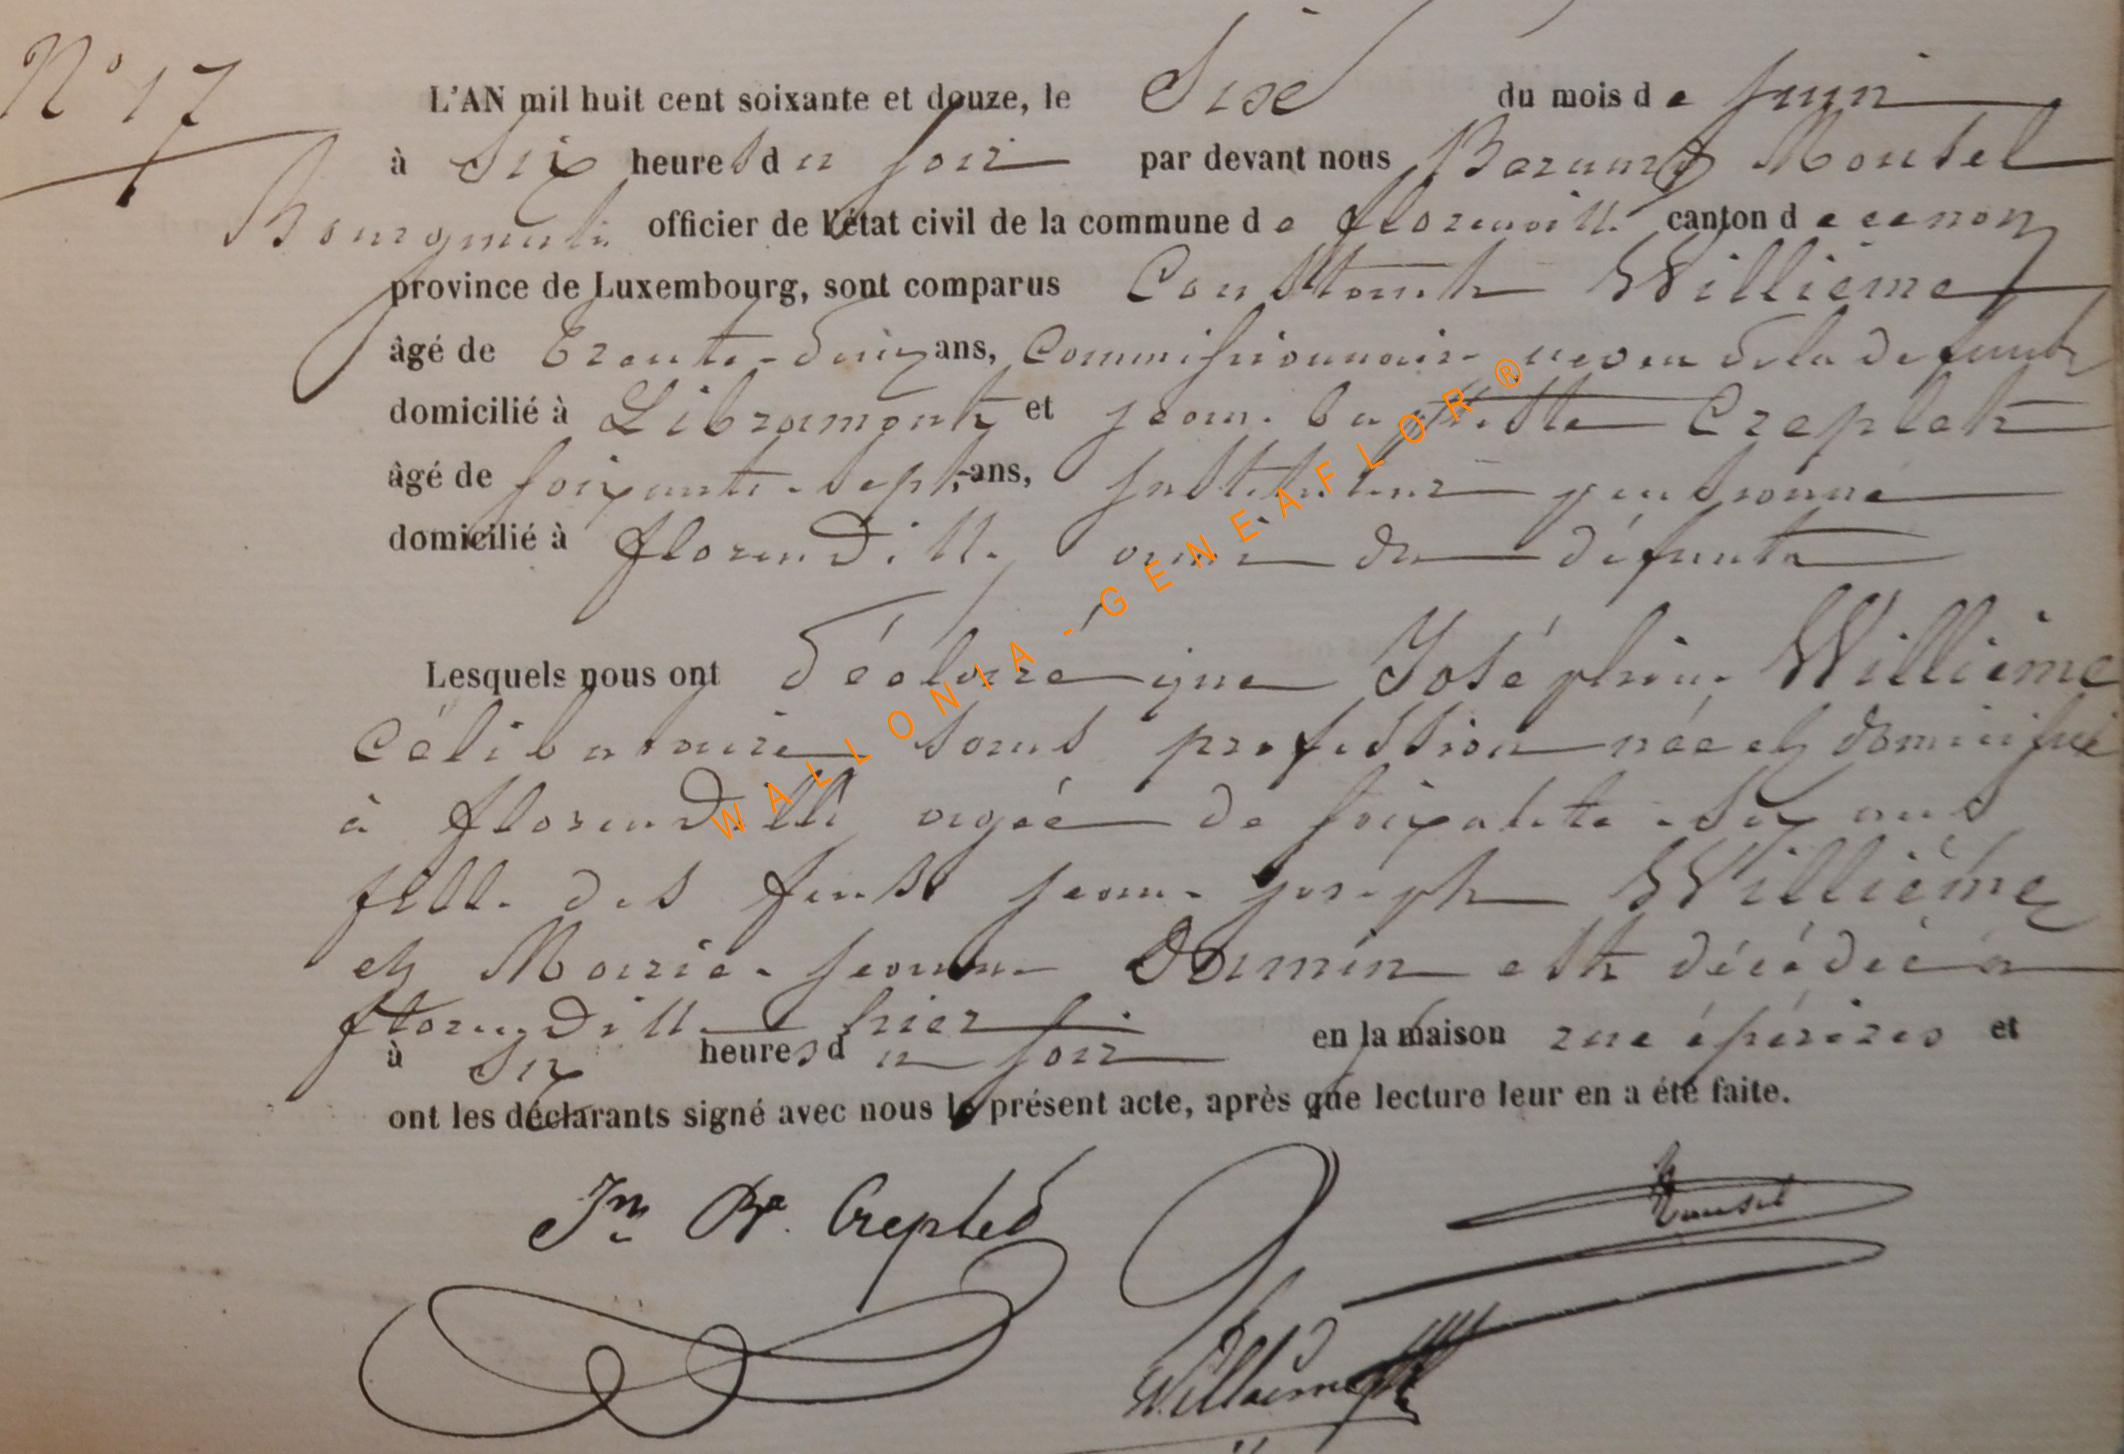 N° 17
L'AN mil huit cent soixante et douze, le Sixe du mois de juin
à Six heures du soir par devant nous Bernard Mousel
Bourgmestre officier de l'état civil de la commune de florenville canton de
province de Luxembourg, sont comparus Constant Willième
âgé de trente-deux ans, Commissionnaire neveu de la defunte
domicilié à Libramont et jean-baptiste Creplet
âgé de soixante-sept ans, instituteur pensionné
domicilié à florenville ami de défunte
Lesquels nous ont déclaré que Joséphine Willième
Célibataire sans profession née et domiciliée
à florenville agée de soixante-six ans
fille des feus jean-joseph Willième
et Marie-jeanne Damin est décédée à
florenville hier
à six heures du soir en la maison rue épérires et
ont les déclarants signé avec nous le présent acte, après que lecture leur en a été faite.
Jn Bte Creplet
Mousel
Willième
WALLONIA-GENEAFLOR®